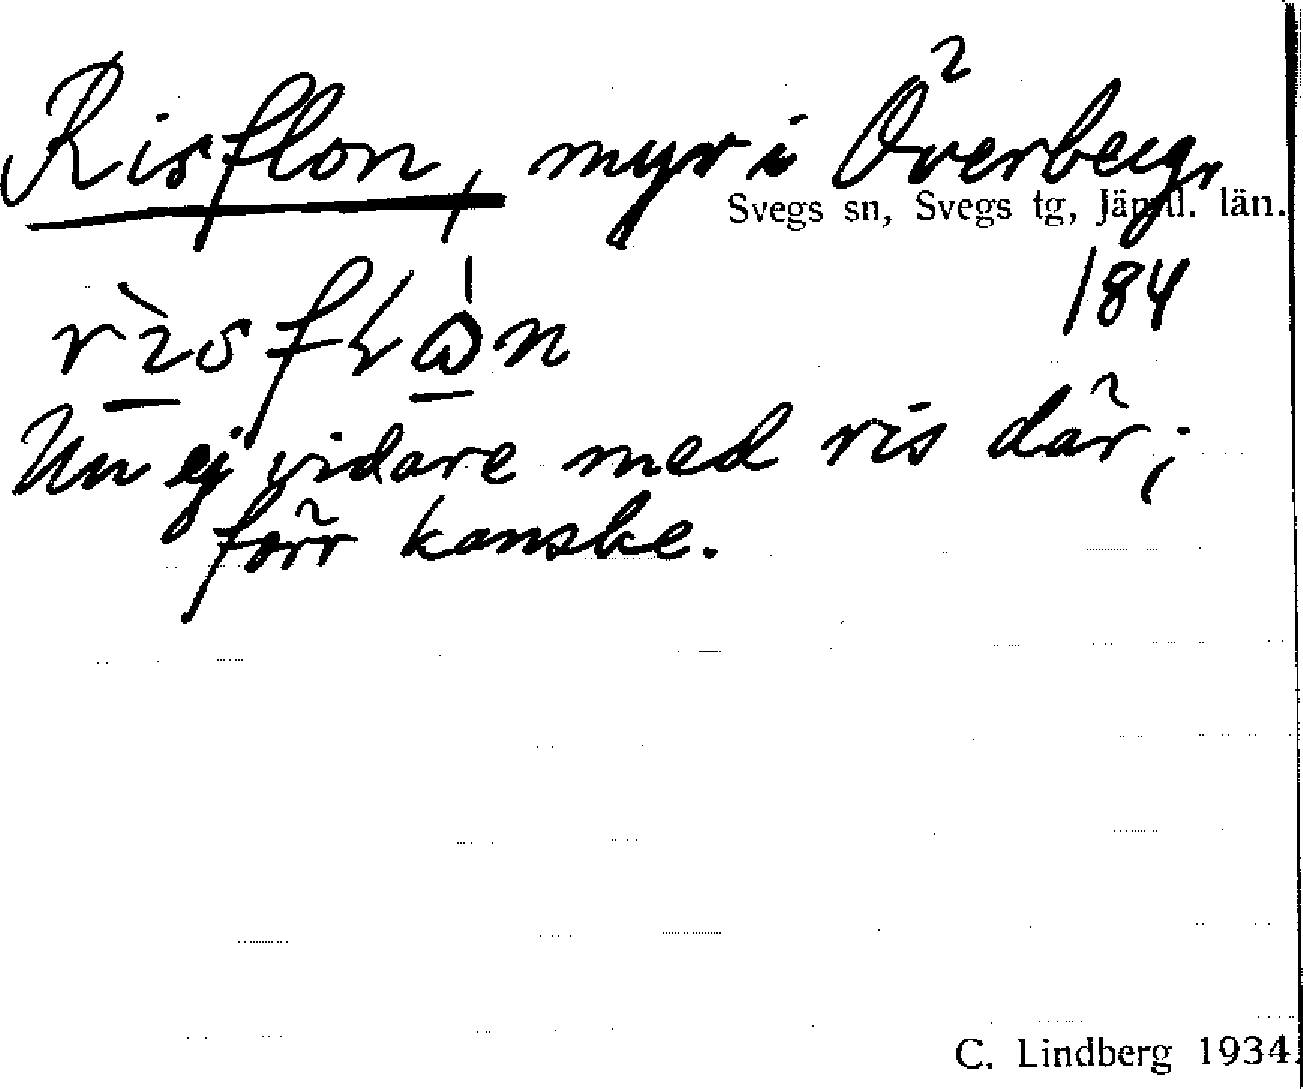 Risflon, myr i Överberg,
Svegs sn, Svegs tg, Jämtl. län.
184
Nu ej vidare med ris där;
förr kanske.
C. Lindberg 1934.